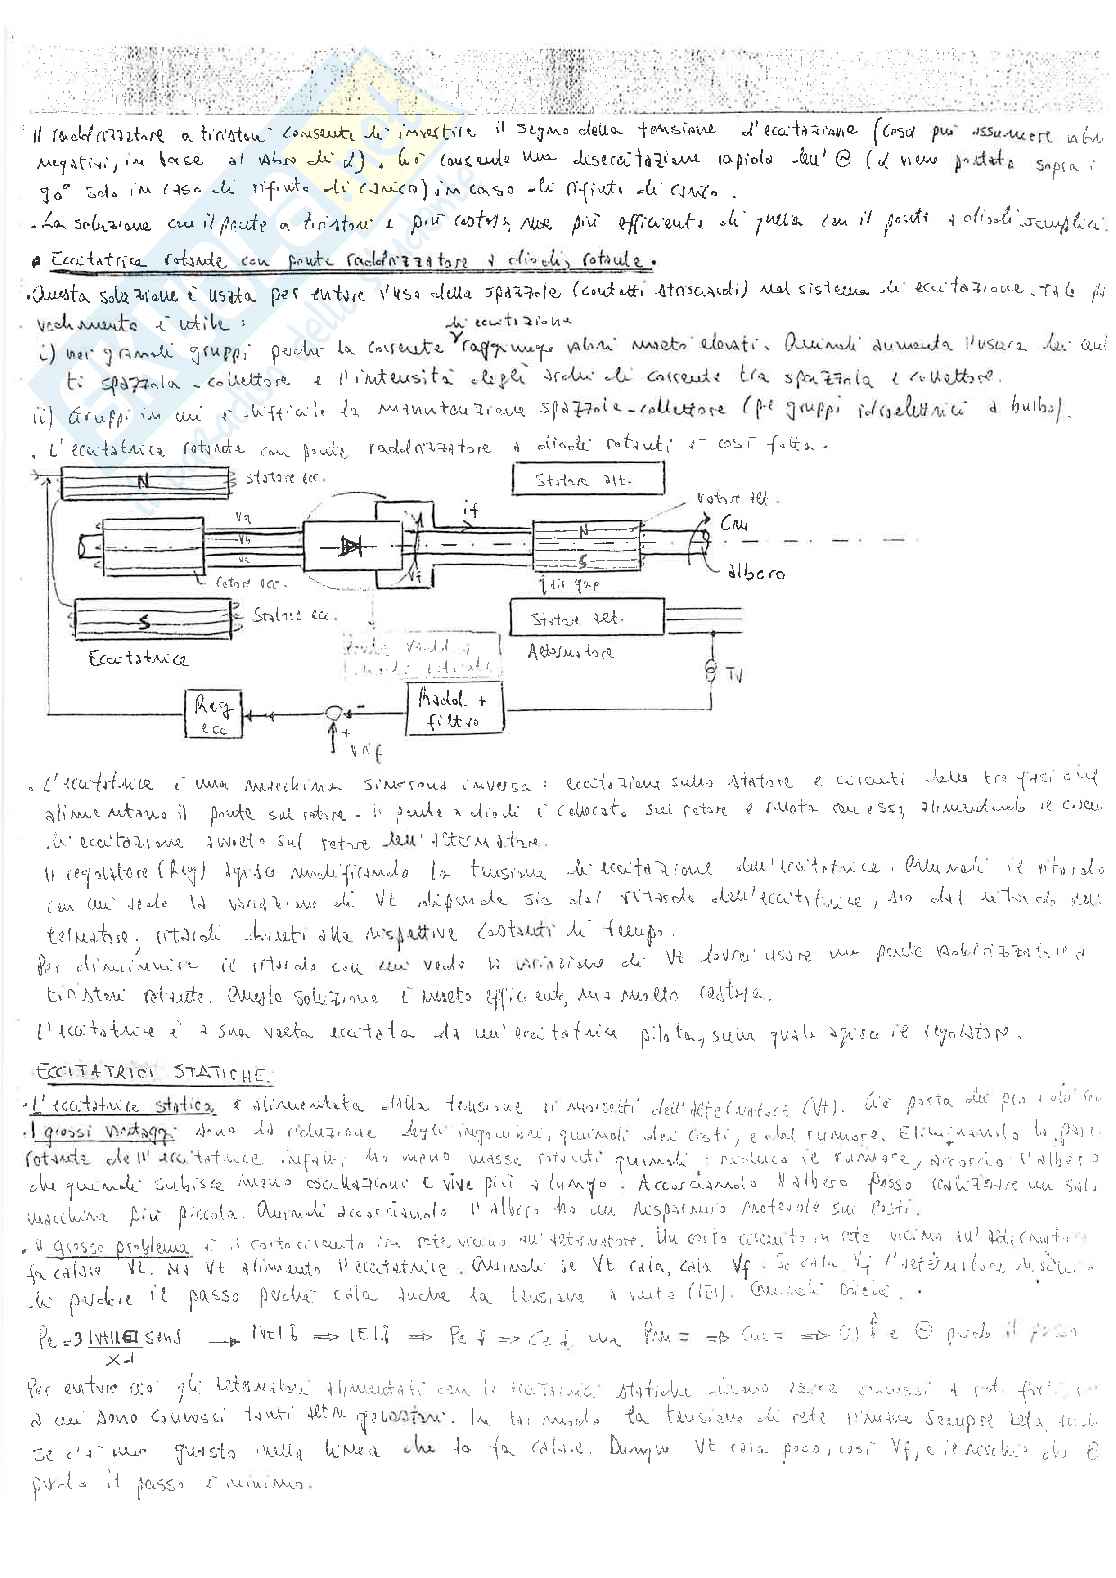 Il raddrizzatore a tiristori consente di invertire il segno della tensione d'eccitazione (così può assumere valori
negativi, in base al valore di α). Ciò consente una diseccitazione rapida dell' (α viene portato sopra i
90° solo in caso di rifiuto di carico) in caso di rifiuto di carico.
. La soluzione con il ponte a tiristori è più costosa, ma più efficiente di quella con il ponte a diodi semplici.
• Eccitatrice rotante con ponte raddrizzatore a diodi, rotante.
• Questa soluzione è usata per evitare l'uso delle spazzole (contatti striscianti) nel sistema di eccitazione. Tale
vedimento è utile:
di eccitazione
i) nei grandi gruppi perché la corrente raggiunge valori molto elevati. Quindi aumenta l'usura dei
ti spazzola-collettore e l'intensità degli archi di corrente tra spazzola e collettore.
ii) Gruppi in cui è difficile la manutenzione spazzole-collettore (pe gruppi idroelettrici a bulbo).
. L'eccitatrice rotante con ponte raddrizzatore a diodi rotanti è così fatta.
N statore ecc. Statore alt. rotore alt.
Va Vb Vc if N S Cm
rotore ecc. Vf air gap albero
S Statore ecc. Statore alt.
Eccitatrice Alternatore TV
Reg ecc - + Radd. + filtro
Vrif
. L'eccitatrice è una macchina sincrona inversa: eccitazione sullo statore e circuiti delle tre fasi che
alimentano il ponte sul rotore. Il ponte a diodi è collocato sul rotore e ruota con esso, alimentando il
di eccitazione avvolto sul rotore dell'alternatore.
Il regolatore (Reg) agisce modificando la tensione di eccitazione dell'eccitatrice. Quindi il ritardo
con cui vedo la variazione di Vt dipende sia dal ritardo dell'eccitatrice, sia dal ritardo dell'
ternatore, ritardi dovuti alle rispettive costanti di tempo.
Per diminuire il ritardo con cui vedo la variazione di Vt dovrei usare un ponte raddrizzatore a
tiristori rotante. Questa soluzione è molto efficiente, ma molto costosa.
L'eccitatrice è a sua volta eccitata da un'eccitatrice pilota, sulla quale agisce il regolatore.
ECCITATRICI STATICHE.
. L'eccitatrice statica è alimentata dalla tensione ai morsetti dell'alternatore (Vt). Ciò porta dei pro e dei
. I grossi vantaggi sono la riduzione degli ingombri, quindi dei costi, e del rumore. Eliminando la parte
rotante dell'eccitatrice infatti ho meno masse rotanti quindi: riduco il rumore, accorcio l'albero
che quindi subisce meno oscillazioni e vive più a lungo. Accorciando l'albero posso realizzare una sala
macchina più piccola. Quindi accorciando l'albero ho un risparmio notevole sui costi.
. Il grosso problema è il cortocircuito in rete vicino all'alternatore. Un corto circuito in rete vicino all'alternatore
fa calare Vt. Ma Vt alimenta l'eccitatrice. Quindi se Vt cala, cala Vf. Se cala Vf l'alternatore rischia
di perdere il passo perché cala anche la tensione a vuoto (|E|).
Pe = 3 |Vt||E| senδ / Xd → |Vt|↓ ⇒ |E|↓ ⇒ Pe↓ ⇒ Ce↓ ma Pm = ⇒ Cm = ⇒ ω↑ e perde il passo
Per evitare ciò gli alternatori alimentati con le eccitatrici statiche devono essere connessi a reti forti,
a cui sono connessi tanti altri generatori. In tal modo la tensione di rete rimane sempre
se c'è un guasto nella linea che la fa calare. Dunque Vt cala poco, così Vf, e il rischio che
perda il passo è minimo.